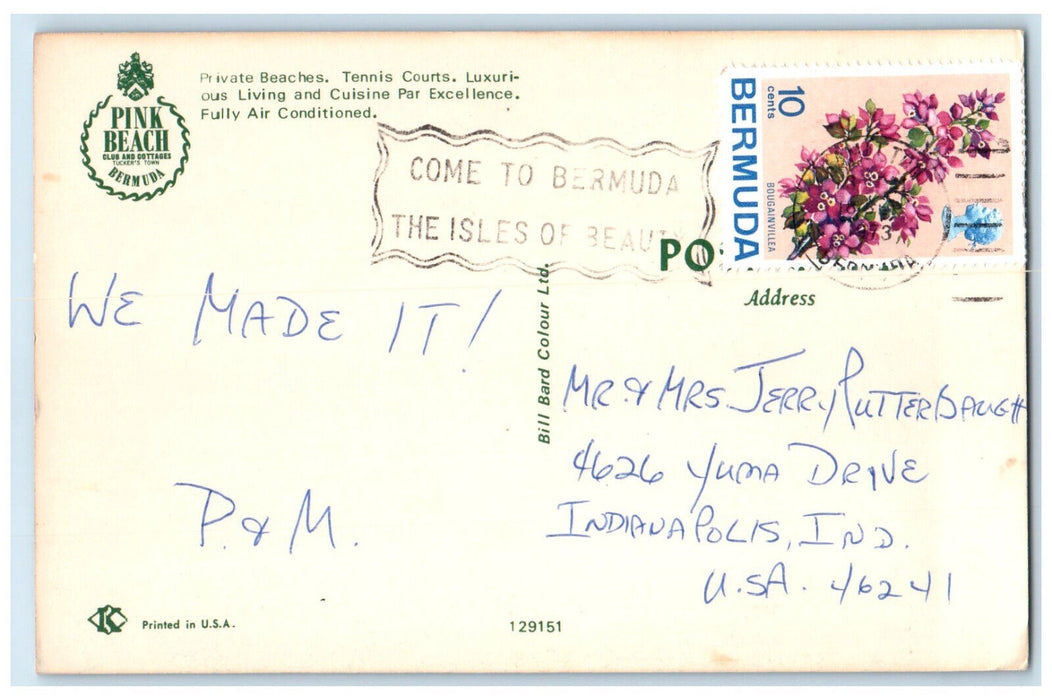 PINK
BEACH
CLUB AND COTTAGES
TUCKER'S TOWN
BERMUDA
Private Beaches. Tennis Courts. Luxuri-
ous Living and Cuisine Par Excellence.
Fully Air Conditioned.
COME TO BERMUDA
THE ISLES OF BEAUTY
10
cents
BERMUDA
BOUGAINVILLEA
73
BERMUDA
PO
Address
WE MADE IT!
P. & M.
Bill Bard Colour Ltd.
MR. & MRS. JERRY RUTTERBAUGH
4626 YUMA DRIVE
INDIANAPOLIS, IND.
U.S.A. 46241
K
Printed in U.S.A.
129151